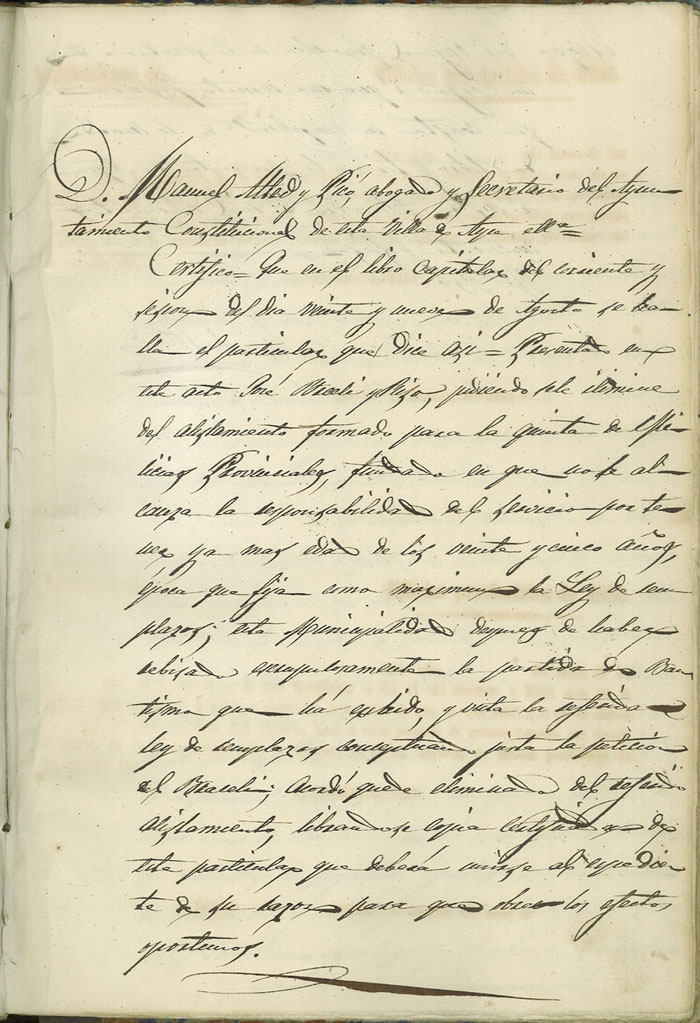 D. Manuel Alted y Picó, abogado y Secretario del Ayun-
tamiento Constitucional de esta Villa de
Certifico = Que en el libro capitular del corriente y
sesion del dia veinte y nueve de Agosto se ha-
lla el particular que dice asi = Presentado en
este acto José y Rizo, pidiendo se le elimine
del alistamiento formado para la quinta de Mi-
licias Provinciales, fundado en que no le al-
canza la responsabilidad del servicio por te-
ner ya mas edad de los veinte y cinco años,
época que fija como maximum la Ley de reem-
plazos; esta Municipalidad despues de haber
rebisado escrupulosamente la partida de Bau-
tismo que há exibido, y vista la referida
Ley de reemplazos conceptuando justa la peticion
del acordó quede eliminado del referido
alistamiento, librandose copia certificada de
este particular que deberá unirse al espedien-
te de su razon para que obre los efectos
oportunos.